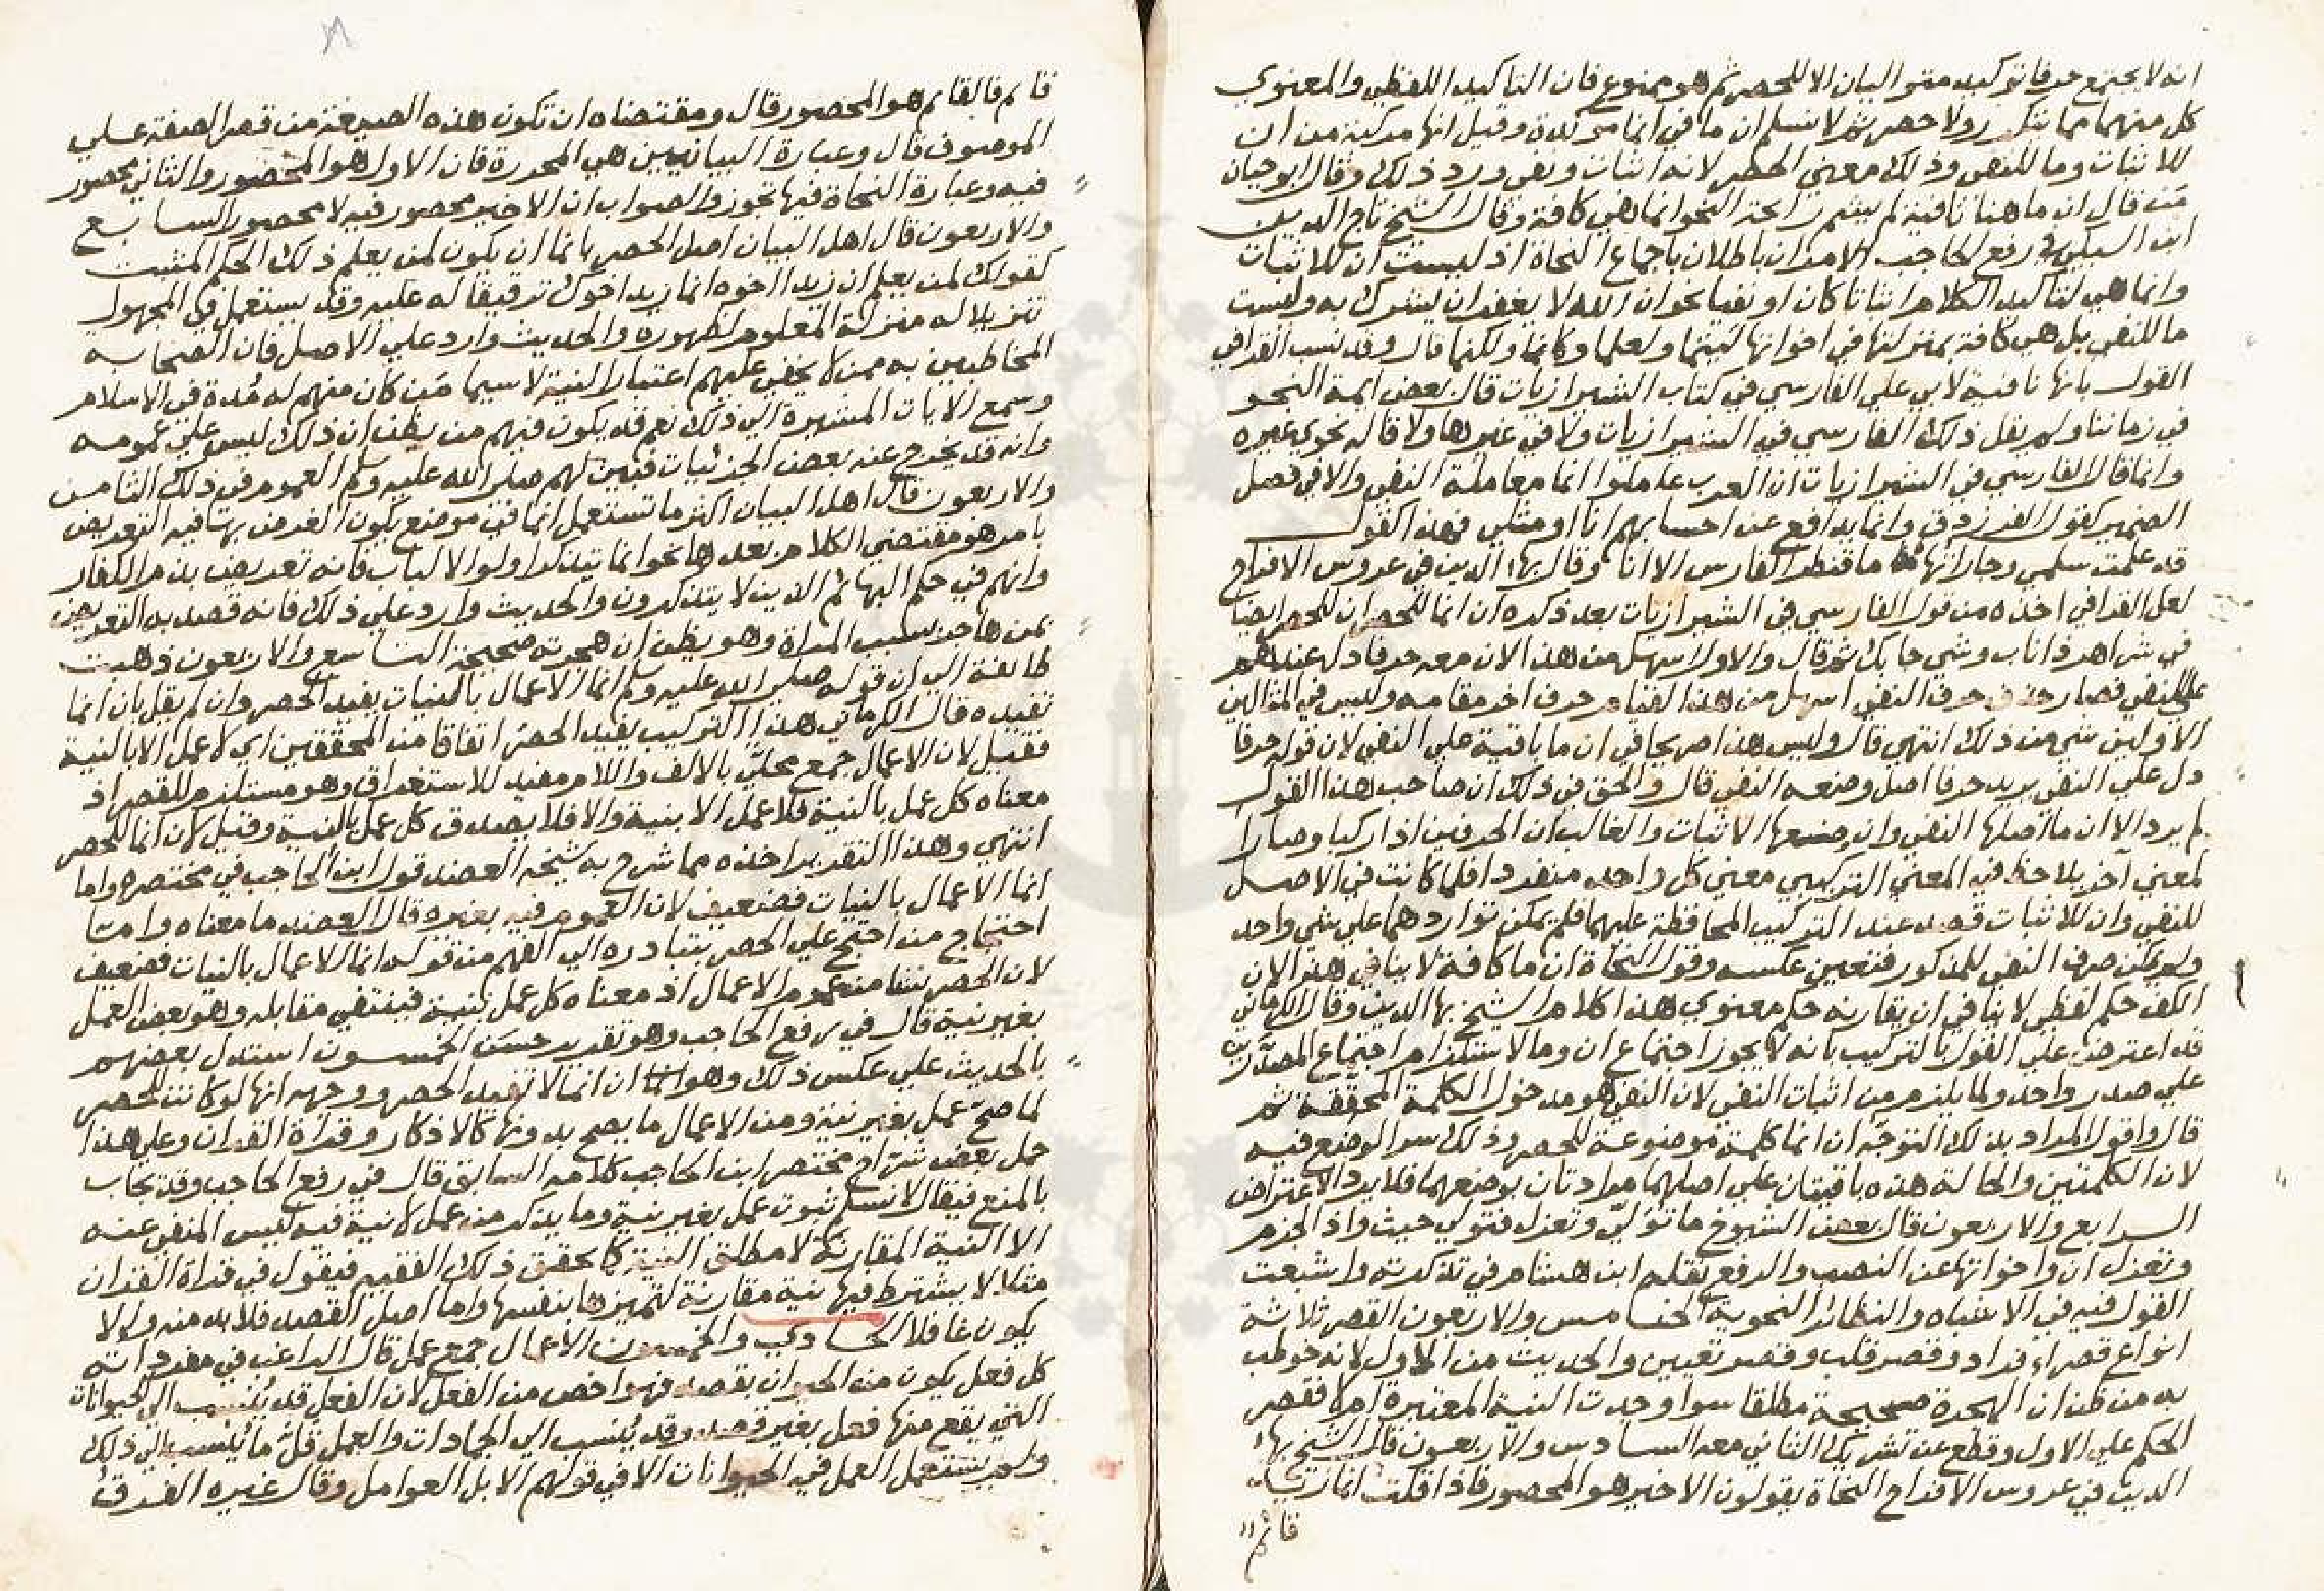 انه لا يجتمع حرفا توكيد متواليان الا للحصر ثم هو ممنوع فان التاكيد اللفظي والمعنوي
كل منهما مما يتكرر ولا حصر ثم لا نسلم ان ما في انما موكدة وقيل انها مركبة من ان
للاثبات وما للنفي وذلك معني الحصر لانه اثبات ونفي ورد ذلك وقال ابو حيان
من قال ان ما هنا نافية لم يشم رايحة النحو انما هي كافة وقال الشيخ تاج الدين
ابن السبكي في رفع الحاجب الامران باطلان باجماع النحاة اذ ليست ان للاثبات
وانما هي لتاكيد الكلام اثباتا كان او نفيا نحو ان الله لا يغفر ان يشرك به وليست
ما للنفي بل هي كافة بمنزلتها في اخواتها ليتما ولعلما وكانما ولكنما قال وقد نسب القرافي
القول بانها نافية لابي علي الفارسي في كتاب الشيرازيات قال بعض ايمة النحو
في زماننا ولم يقل ذلك الفارسي في الشيرازيات ولا في غيرها ولا قاله نحوي غيره
وانما قال الفارسي في الشيرازيات ان العرب عاملوا انما معاملة النفي والا في فصل
الضمير كقول الفرزدق وانما يدافع عن احسابهم انا او مثلي فهذا كقول
قد علمت سلمي وجاراتها ما قنطر الفارس الا انا وقال بها الدين في عروس الافراح
لعل القرافي اخذه من قول الفارسي في الشيرازيات بعد ذكره ان انما للحصر ان للحصر ايضا
في شر اهر ذا ناب وشي جا بك ثم قال والاول اسهل من هذا لان معه حرفا دل عندهم
علي النفي فصار حذف حرف النفي اسهل من هذا لقيام حرف اخر مقامه وليس في المثالين
الاولين شي من ذلك انتهي قال وليس هذا صريحا في ان ما باقية علي النفي لان قوله حرفا
دل علي النفي يريد حرفا اصل وضعه النفي قال والحق في ذلك ان صاحب هذا القول
لم يرد الا ان ما اصلها النفي وان وضعها الاثبات والغالب ان الحرفين اذا ركبا وصارا
لمعني آخر يلاحظ في المعني التركيبي معني كل واحد منفردا فلما كانت في الاصل
للنفي وان للاثبات قصد عند التركيب المحافظة عليهما فلم يمكن تواردهما علي شي واحد
ولم يمكن صرف النفي للمذكور فتعين عكسه وقول النحاة ان ما كافة لا ينافي هذا لان
الكف حكم لفظي لا ينافي ان يقارنه حكم معنوي هذا كلام الشيخ بها الدين وقال الكرماني
قد اعترض علي القول بالتركيب بانه لا يجوز اجتماع ان وما لاستلزام اجتماع المصدرين
علي صدر واحد ولما يلزم من اثبات النفي لان النفي هو مدخول الكلمة المحققة ثم
قال واقول المراد بذلك التوجه ان انما كلمة موضوعة للحصر وذلك سر الوضع فيه
لان الكلمتين والحالة هذه باقيتان علي اصلهما مرادتان بوضعهما فلا يرد الاعتراض
الرابع والاربعون قال بعض الشيوخ ما تولي وتعزل فتولي حيث واذ الجزم
وتعزل ان واخواتها عن النصب والرفع نقله ابن هشام في تذكرته واشبعت
القول فيه في الاشباه والنظائر النحوية الخامس والاربعون القصر ثلاثة
انواع قصر افراد وقصر قلب وقصر تعيين والحديث من الاول لانه خوطب
به من ظن ان الهجرة صحيحة مطلقا سوا وجدت النية المعتبرة ام لا فقصر
الحكم علي الاول وقطع عن تشريك الثاني معه السادس والاربعون قال الشيخ بهاء
الدين في عروس الافراح النحاة يقولون الاخير هو المحصور فاذا قلت انما زيد
قائم
قايم فالقايم هو المحصور قال ومقتضاه ان تكون هذه الصيغة من قصر الصفة علي
الموصوف قال وعبارة البيانيين هي المحررة فان الاول هو المحصور والثاني محصور
فيه وعبارة النحاة فيها تجوز والصواب ان الاخير محصور فيه لا محصور السابع
والاربعون قال اهل البيان اصل الحصر بانما ان يكون لمن يعلم ذلك الحكم المثبت
كقولك لمن يعلم ان زيدا اخوه انما زيد اخوك ترقيقا له عليه وقد يستعمل في المجهول
تنزيلا له منزلة المعلوم لظهوره والحديث وارد علي الاصل فان الصحابة
المخاطبين به ممن لا يخفي عليهم اعتبار النية لا سيما من كان منهم له مدة في الاسلام
وسمع الايات المشيرة الي ذلك نعم قد يكون فيهم من يظن ان ذلك ليس علي عمومه
وانه قد يخرج عنه بعض الجزئيات فبين لهم صلى الله عليه وسلم العموم في ذلك الثامن
والاربعون قال اهل البيان اكثر ما تستعمل انما في موضع يكون الغرض بها فيه التعريض
بامر هو مقتضي الكلام بعدها نحو انما يتذكر اولوا الالباب فانه تعريض بذم الكفار
وانهم في حكم البهائم الذين لا يتذكرون والحديث وارد علي ذلك فانه قصد به التعريض
بمن هاجر بسبب المراة وهو يظن ان هجرته صحيحة التاسع والاربعون ذهبت
طائفة الي ان قوله صلى الله عليه وسلم انما الاعمال بالنيات يفيد الحصر وان لم يقل بان انما
تفيده قال الكرماني هذا التركيب يفيد الحصر اتفاقا من المحققين اي لا عمل الا بالنية
فقيل لان الاعمال جمع محلي بالالف واللام مفيد للاستغراق وهو مستلزم للقصر اذ
معناه كل عمل بالنية فلا عمل الا بنية والا فلا يصدق كل عمل بالنية وقيل لان انما للحصر
انتهي وهذا التقرير اخذه مما شرح به شيخه العضد قول ابن الحاجب في مختصره واما
انما الاعمال بالنيات فضعيف لان العموم فيه بغيره قال العضد ما معناه واما
احتجاج من احتج علي الحصر بتبادره الي الفهم من قوله انما الاعمال بالنيات فضعيف
لان الحصر نشا من عموم الاعمال اذ معناه كل عمل بنية فينتفي مقابله وهو بعض العمل
بغير نية قال في رفع الحاجب وهو تقرير حسن الخمسون استدل بعضهم
بالحديث علي عكس ذلك وهو ان انما لا تفيد الحصر ووجهه انها لو كانت للحصر
لما صح عمل بغير نية ومن الاعمال ما يصح بدونها كالاذكار وقراة القران وعلي هذا
حمل بعض شراح مختصر ابن الحاجب كلامه السابق قال في رفع الحاجب وقد يجاب
بالمنع فيقال لا نسلم ثبوت عمل بغير نية وما يذكر من عمل لا نية فيه ليس المنفي عنه
الا النية المقارنة لا مطلق النية كما يحقق ذلك الفقيه فيقول في قراة القران
مثلا لا يشترط فيها نية مقارنة لتميزها بنفسها واما اصل القصد فلا بد منه والا
يكون غافلا الحادي والخمسون الاعمال جمع عمل قال الراغب في مفرداته
كل فعل يكون من الحيوان بقصد فهو اخص من الفعل لان الفعل قد ينسب الي الحيوانات
التي يقع منها فعل بغير قصد وقد ينسب الي الجمادات والعمل قل ما ينسب الي ذلك
ولم يستعمل العمل في الحيوانات الا في قولهم الابل العوامل وقال غيره الفرق